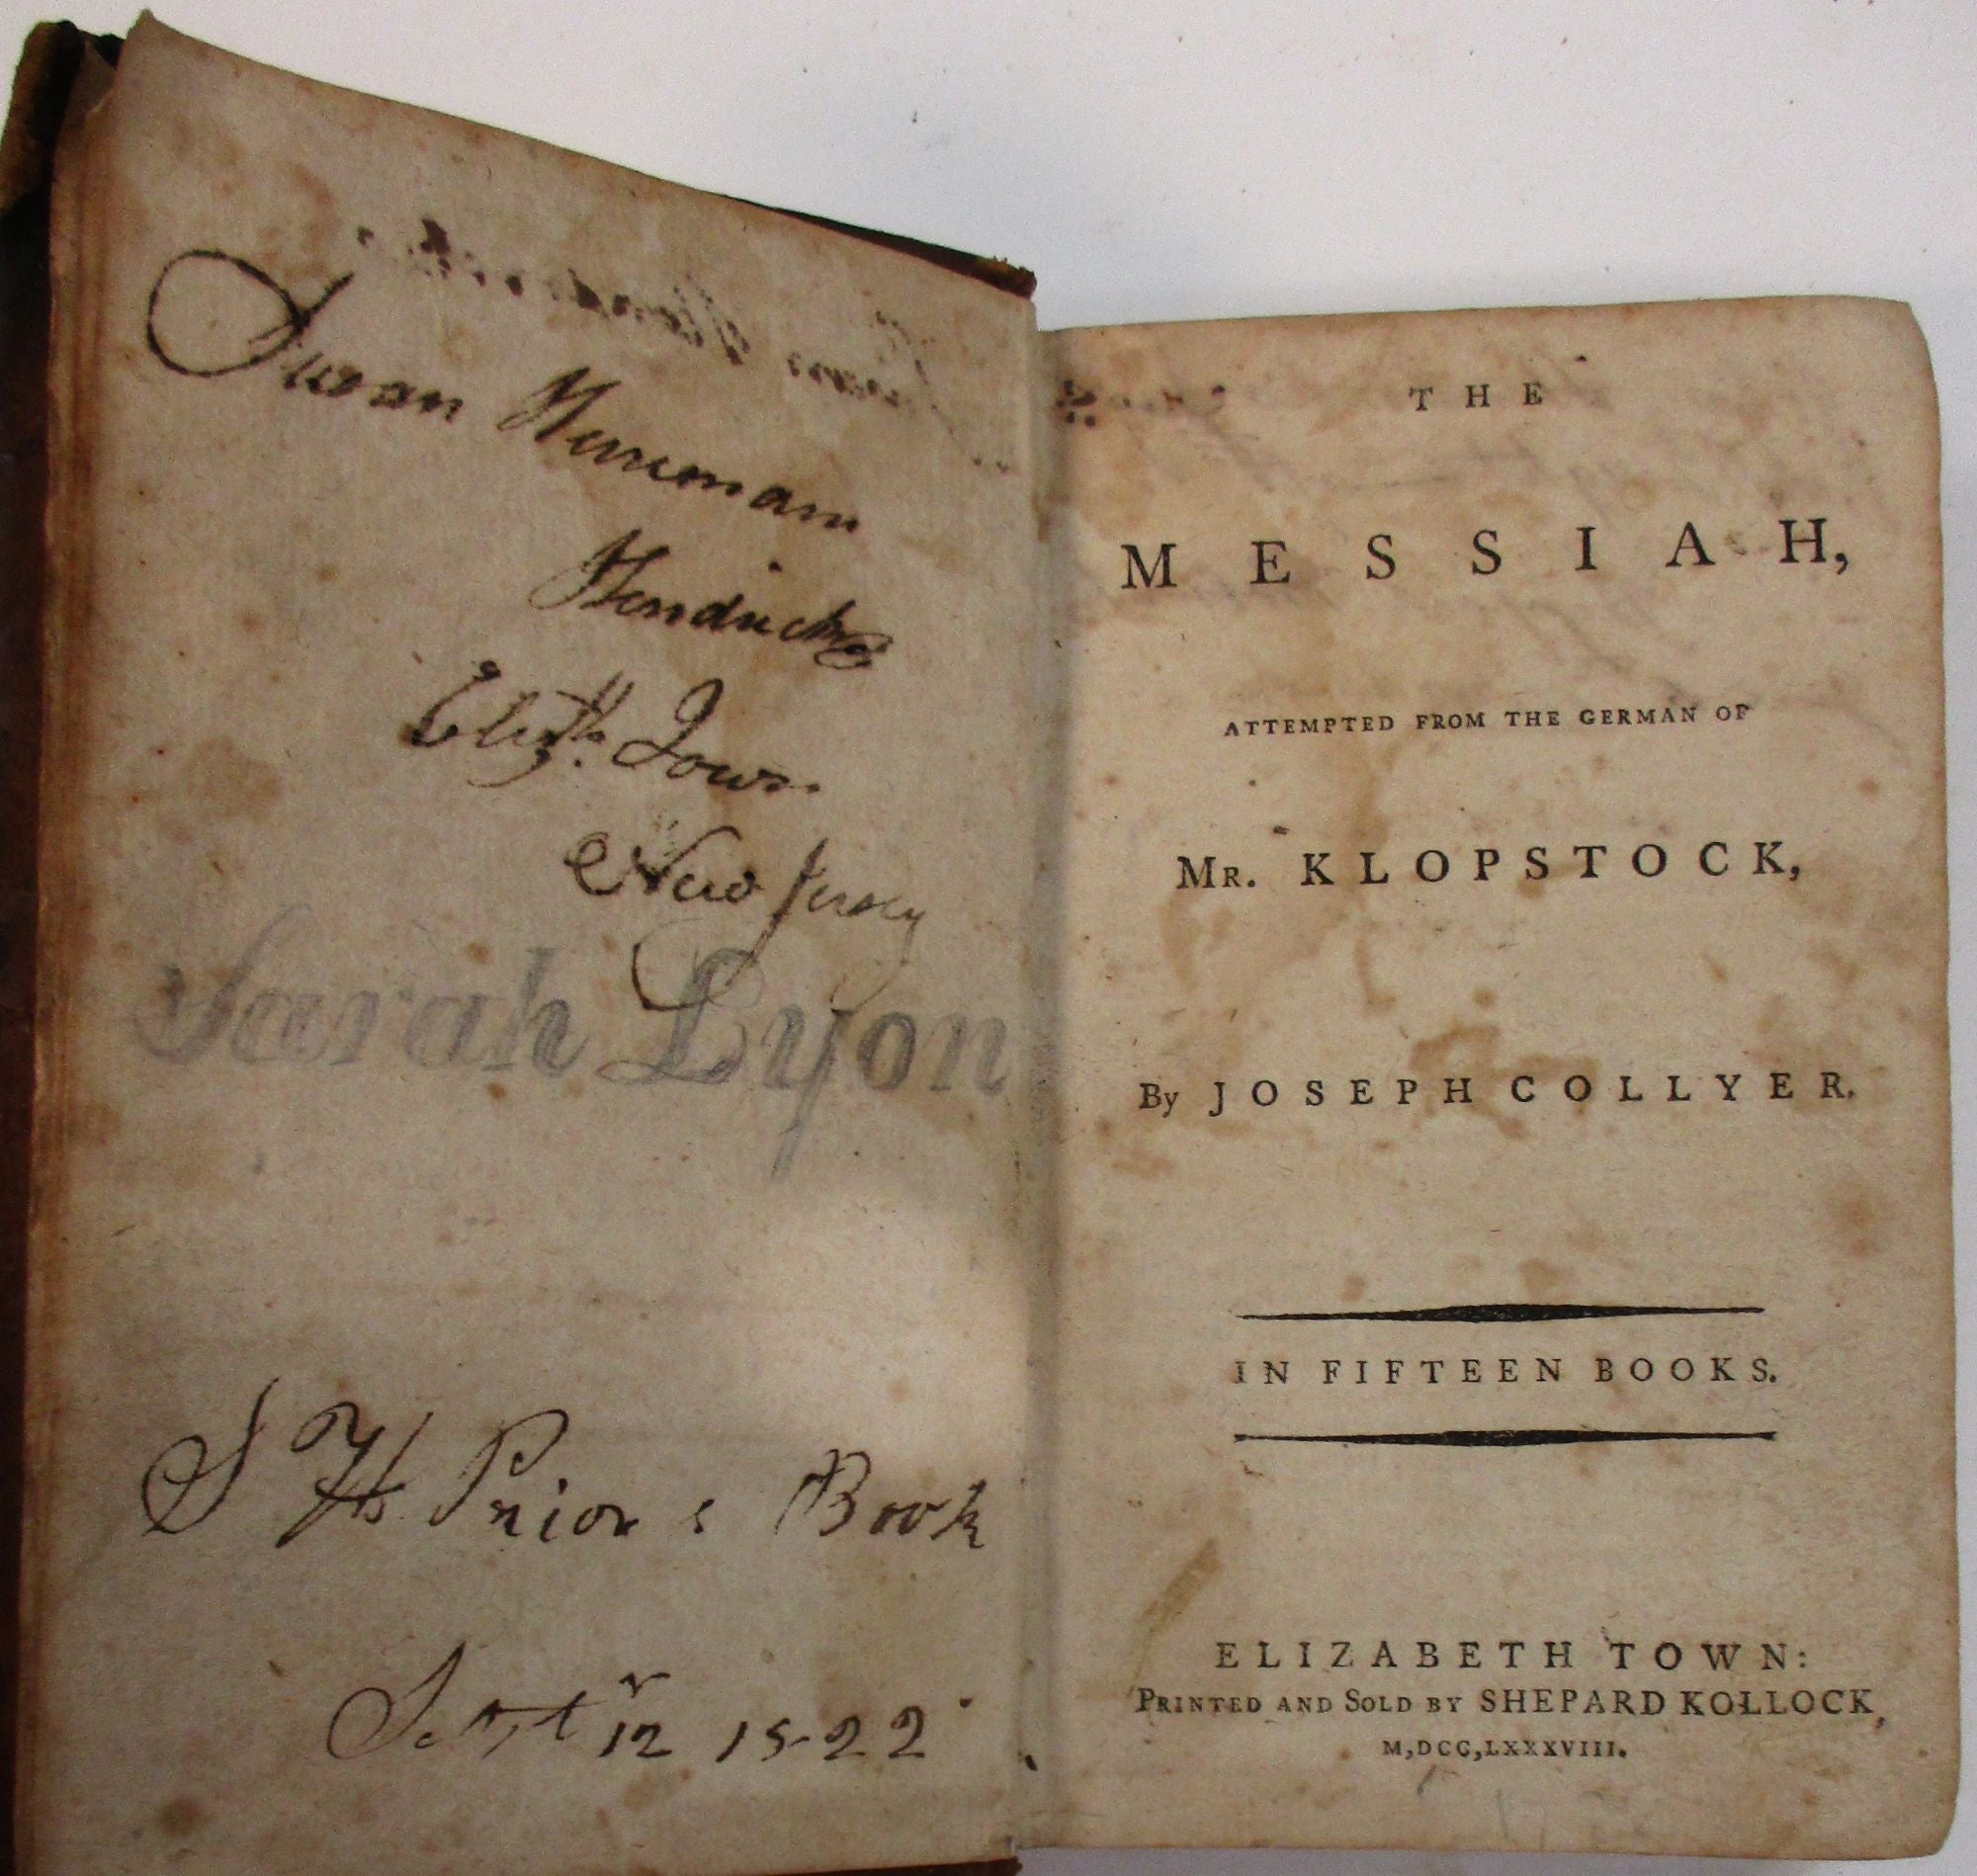 Susan Herriman
Hendricks
Eliz.th Town.
New Jersey
Sarah Lyon
S H Prior s Book
Sept r 12 1822
THE
MESSIAH,
ATTEMPTED FROM THE GERMAN OF
MR. KLOPSTOCK,
By JOSEPH COLLYER.
IN FIFTEEN BOOKS.
ELIZABETH TOWN:
PRINTED AND SOLD BY SHEPARD KOLLOCK,
M,DCC,LXXXVIII.